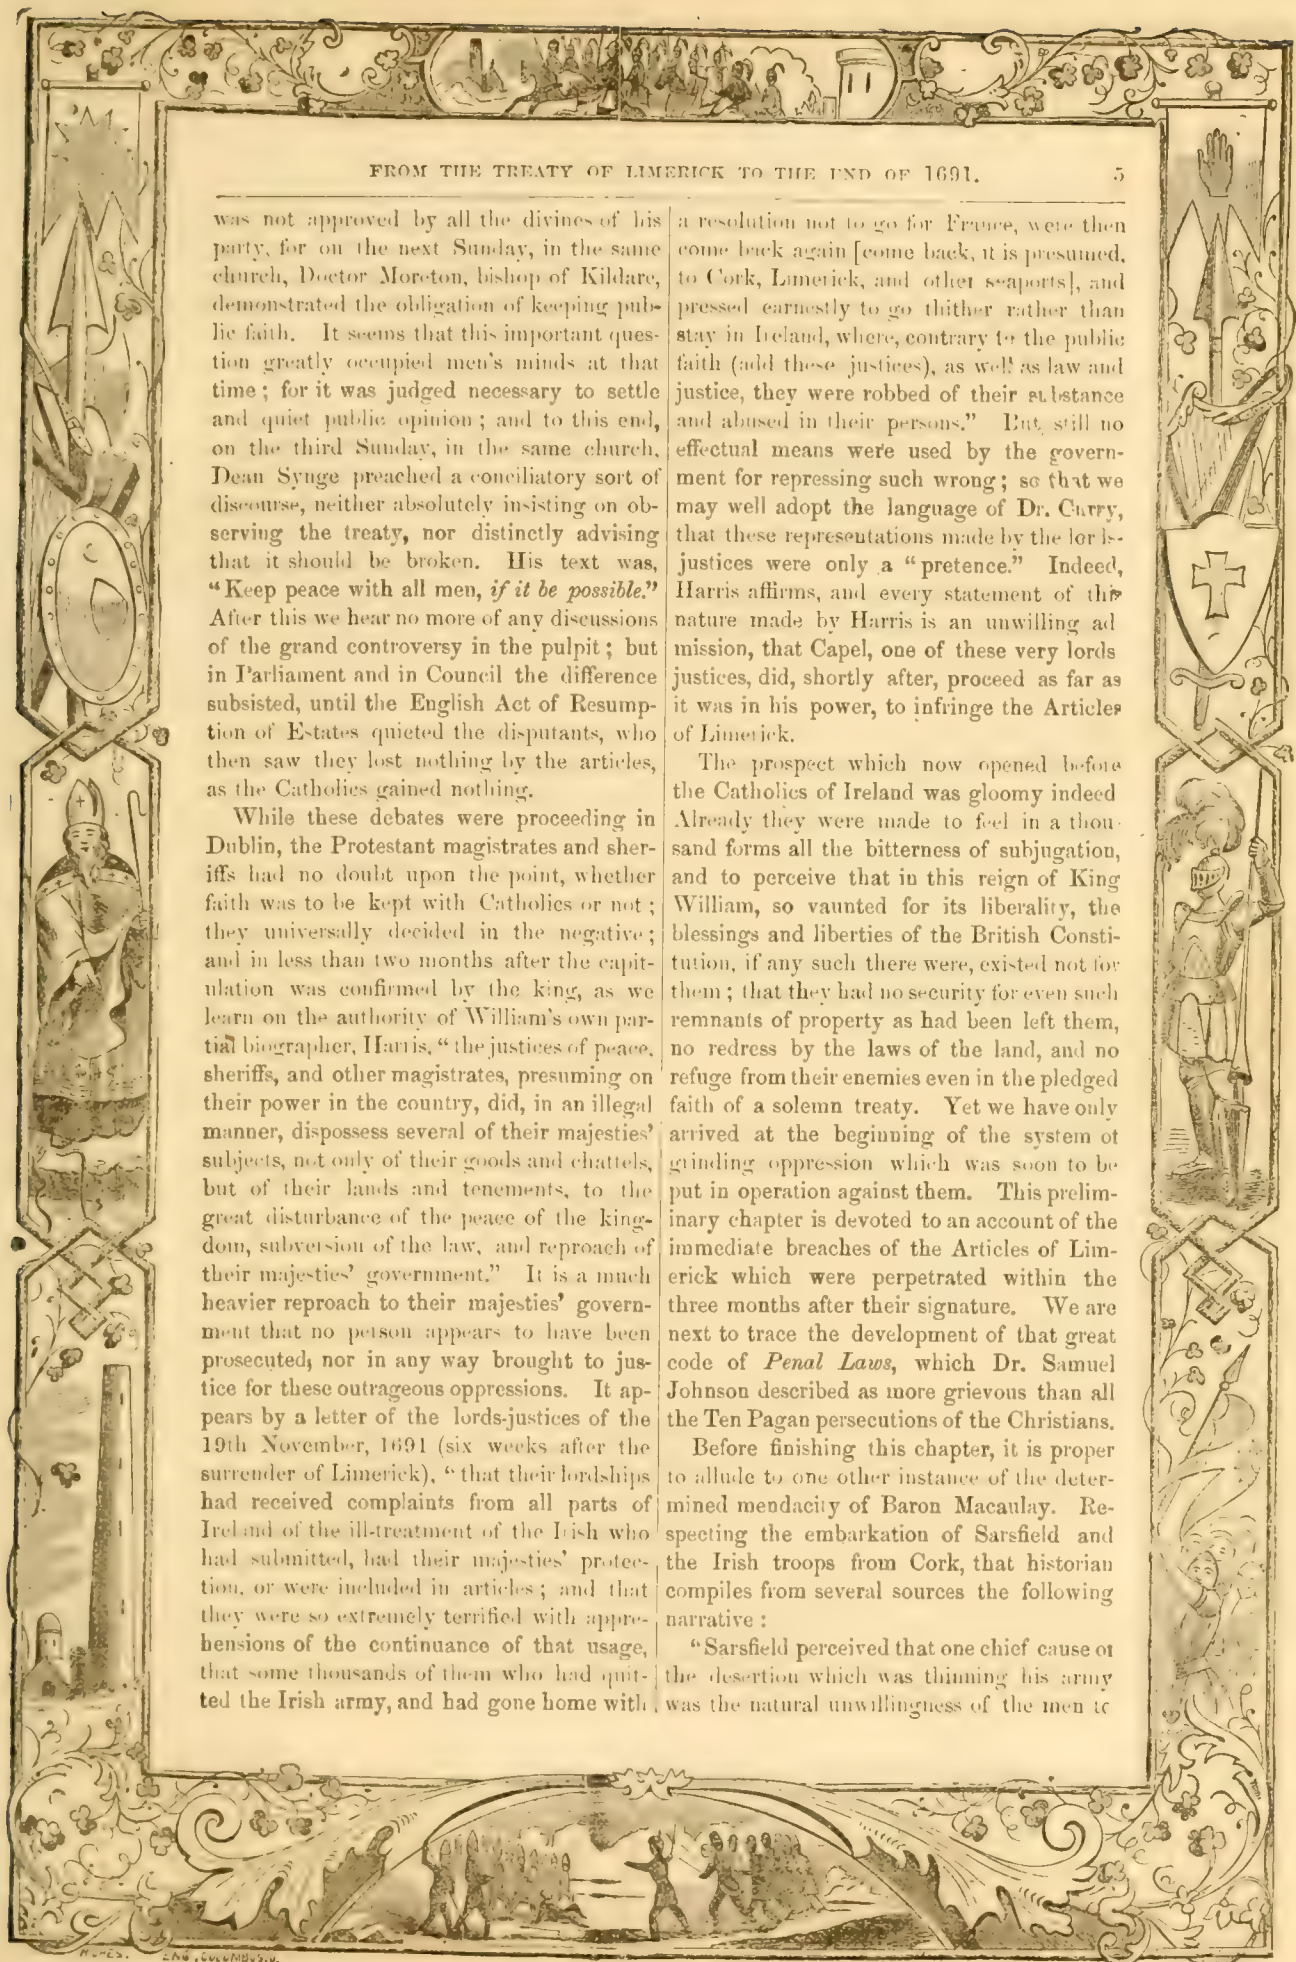 FROM THE TREATY OF LIMERICK TO THE END OF 1691.
5
was not approved by all the divines of his
party, for on the next Sunday, in the same
church, Doctor Moreton, bishop of Kildare,
demonstrated the obligation of keeping pub-
lic faith. It seems that this important ques-
tion greatly occupied men's minds at that
time; for it was judged necessary to settle
and quiet public opinion; and to this end,
on the third Sunday, in the same church,
Dean Synge preached a conciliatory sort of
discourse, neither absolutely insisting on ob-
serving the treaty, nor distinctly advising
that it should be broken. His text was,
"Keep peace with all men, if it be possible."
After this we hear no more of any discussions
of the grand controversy in the pulpit; but
in Parliament and in Council the difference
subsisted, until the English Act of Resump-
tion of Estates quieted the disputants, who
then saw they lost nothing by the articles,
as the Catholics gained nothing.
While these debates were proceeding in
Dublin, the Protestant magistrates and sher-
iffs had no doubt upon the point, whether
faith was to be kept with Catholics or not;
they universally decided in the negative;
and in less than two months after the capit-
ulation was confirmed by the king, as we
learn on the authority of William's own par-
tial biographer, Harris, "the justices of peace,
sheriffs, and other magistrates, presuming on
their power in the country, did, in an illegal
manner, dispossess several of their majesties'
subjects, not only of their goods and chattels,
but of their lands and tenements, to the
great disturbance of the peace of the king-
dom, subversion of the law, and reproach of
their majesties' government." It is a much
heavier reproach to their majesties' govern-
ment that no person appears to have been
prosecuted, nor in any way brought to jus-
tice for these outrageous oppressions. It ap-
pears by a letter of the lords-justices of the
19th November, 1691 (six weeks after the
surrender of Limerick), "that their lordships
had received complaints from all parts of
Ireland of the ill-treatment of the Irish who
had submitted, had their majesties' protec-
tion, or were included in articles; and that
they were so extremely terrified with appre-
hensions of the continuance of that usage,
that some thousands of them who had quit-
ted the Irish army, and had gone home with
a resolution not to go for France, were then
come back again [come back, it is presumed,
to Cork, Limerick, and other seaports], and
pressed earnestly to go thither rather than
stay in Ireland, where, contrary to the public
faith (add these justices), as well as law and
justice, they were robbed of their substance
and abused in their persons." But still no
effectual means were used by the govern-
ment for repressing such wrong; so that we
may well adopt the language of Dr. Curry,
that these representations made by the lords-
justices were only a "pretence." Indeed,
Harris affirms, and every statement of this
nature made by Harris is an unwilling ad
mission, that Capel, one of these very lords
justices, did, shortly after, proceed as far as
it was in his power, to infringe the Articles
of Limerick.
The prospect which now opened before
the Catholics of Ireland was gloomy indeed
Already they were made to feel in a thou-
sand forms all the bitterness of subjugation,
and to perceive that in this reign of King
William, so vaunted for its liberality, the
blessings and liberties of the British Consti-
tution, if any such there were, existed not for
them; that they had no security for even such
remnants of property as had been left them,
no redress by the laws of the land, and no
refuge from their enemies even in the pledged
faith of a solemn treaty. Yet we have only
arrived at the beginning of the system of
grinding oppression which was soon to be
put in operation against them. This prelim-
inary chapter is devoted to an account of the
immediate breaches of the Articles of Lim-
erick which were perpetrated within the
three months after their signature. We are
next to trace the development of that great
code of Penal Laws, which Dr. Samuel
Johnson described as more grievous than all
the Ten Pagan persecutions of the Christians.
Before finishing this chapter, it is proper
to allude to one other instance of the deter-
mined mendacity of Baron Macaulay. Re-
specting the embarkation of Sarsfield and
the Irish troops from Cork, that historian
compiles from several sources the following
narrative:
"Sarsfield perceived that one chief cause of
the desertion which was thinning his army
was the natural unwillingness of the men to
ENG. COLUMBUS.O.